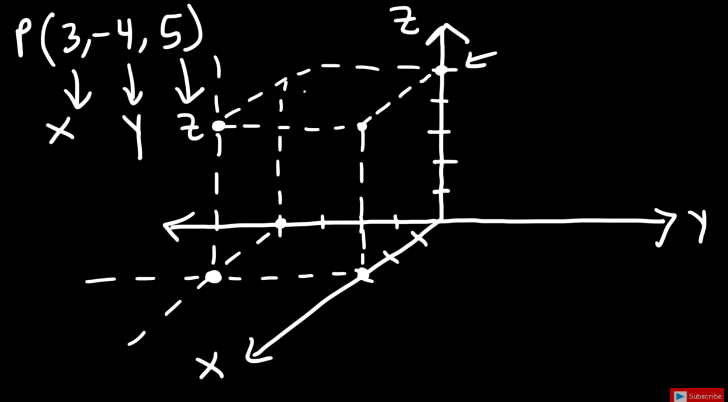 P(3,-4,5)
X Y Z
Z
Y
X
Subscribe